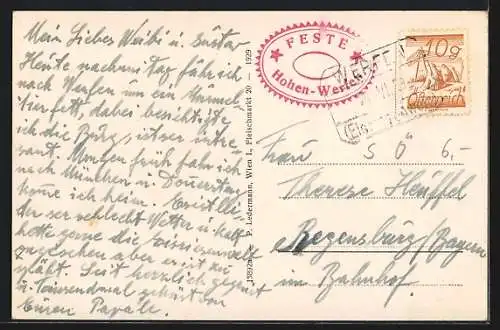 Mein Liebes Weibi u. Gustav
Heute nachm. tag fahr ich
nach Werfen um ein Murmel
tierfett, dabei besichtigte
ich die Burg, ist sehr inte
resant. Morgen früh fahr ich
nach München u. Donnerstag
kome ich heim. Es ist
der schlecht Wetter u. kalt
hatte gerne die
angesehen aber es ist zu
spät. Seit herzlich gegrüßt
u. tausendmal geküst von
Euren Papale.
FESTE
Hohen-Werfen
WERFEN
10g
Österreich
138926 P. Ledermann, Wien I., Fleischmarkt 20 — 1929
Frau S Ö 6,-
Therese Heuffel
Regensburg/Bayern
im Bahnhof.